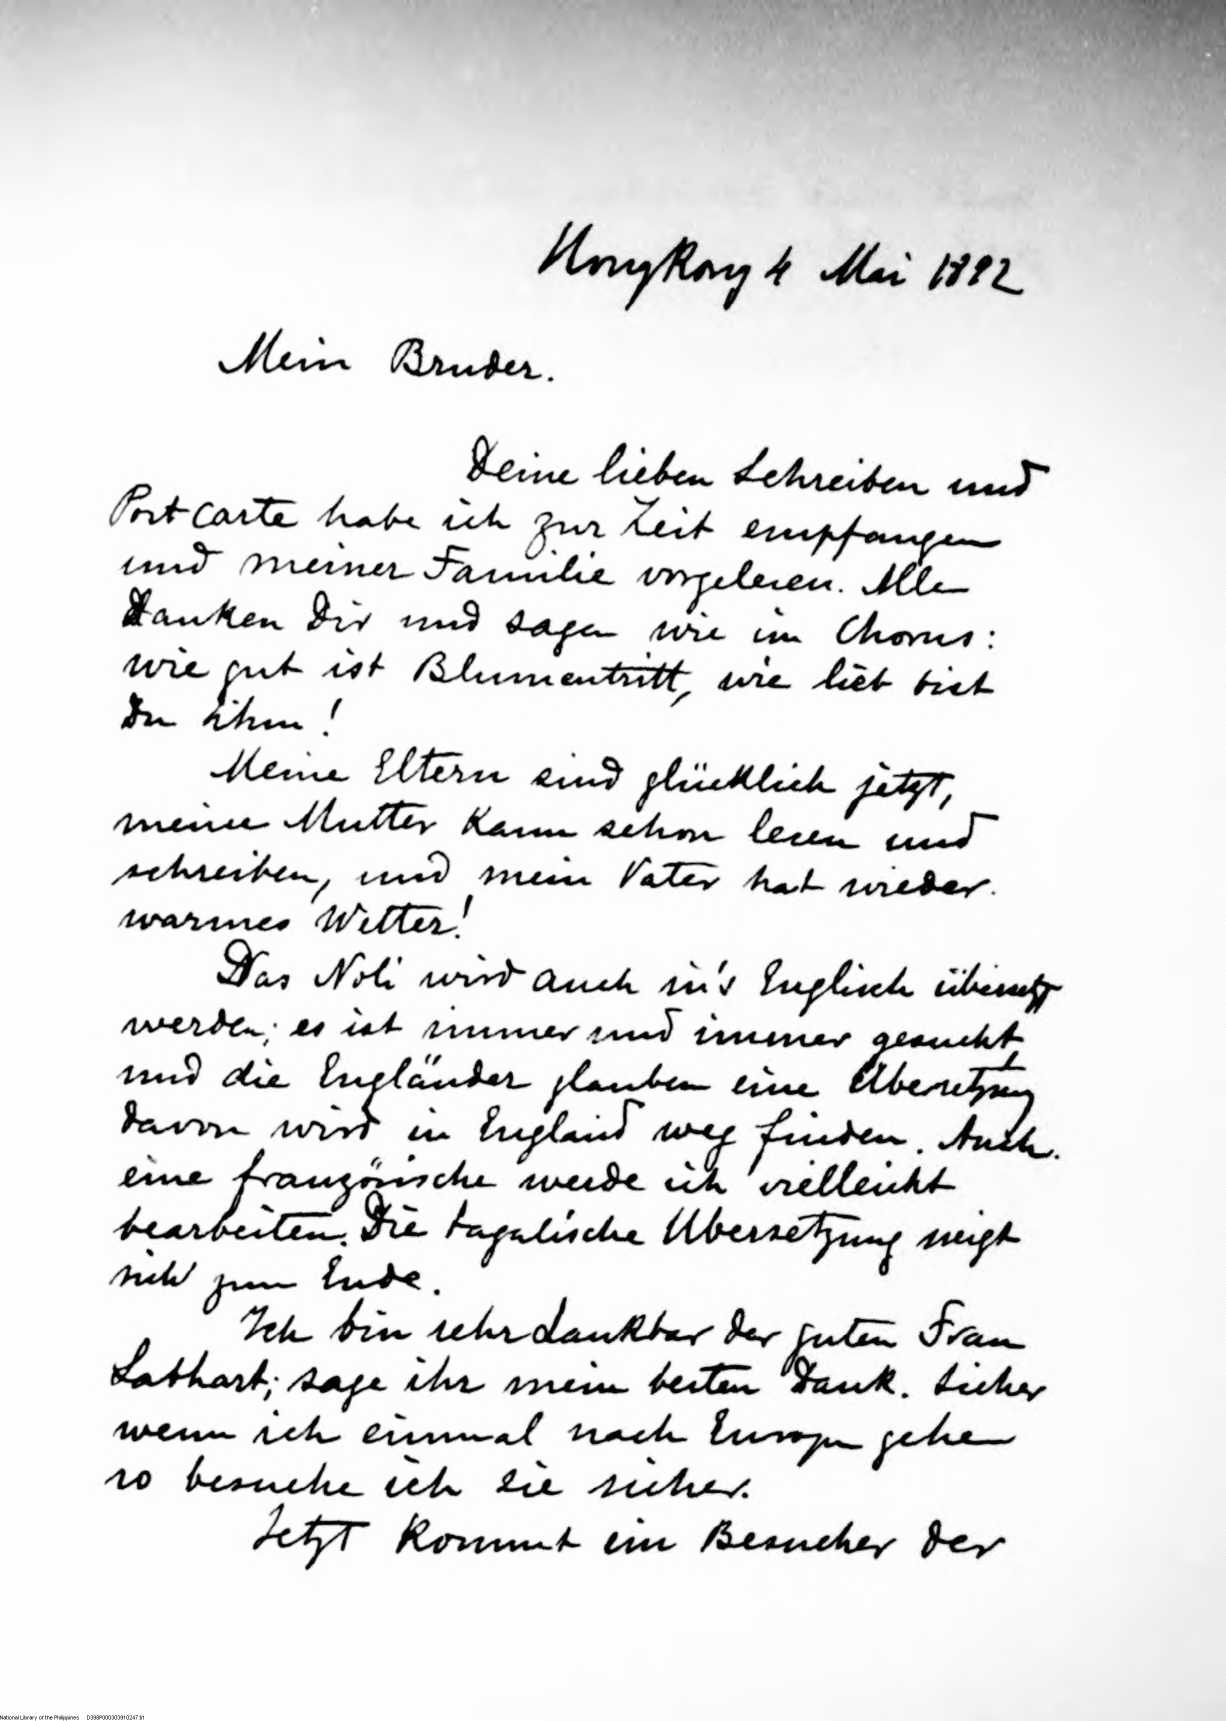 HongKong 4 Mai 1892
Mein Bruder.
Deine lieben Schreiben und
Postcarte habe ich zur Zeit empfangen
und meiner Familie vorgelesen. Alle
danken Dir und sagen wie im Chorus:
wie gut ist Blumentritt, wie lieb bist
Du ihm!
Meine Eltern sind glücklich jetzt,
meine Mutter kann schon lesen und
schreiben, und mein Vater hat wieder
warmes Wetter!
Das Noli wird auch in's Englisch übersetzt
werden; es ist immer und immer gesucht
und die Engländer glauben eine Übersetzung
davon wird in England weg finden. Auch
eine französische werde ich vielleicht
bearbeiten. Die tagalische Übersetzung neigt
sich zum Ende.
Ich bin sehr dankbar der guten Frau
Labhart; sage ihr mein besten Dank. Sicher
wenn ich einmal nach Europa gehe
so besuche ich sie sicher.
Jetzt kommt ein Besucher der
National Library of the Philippines D398P000303910247.tif